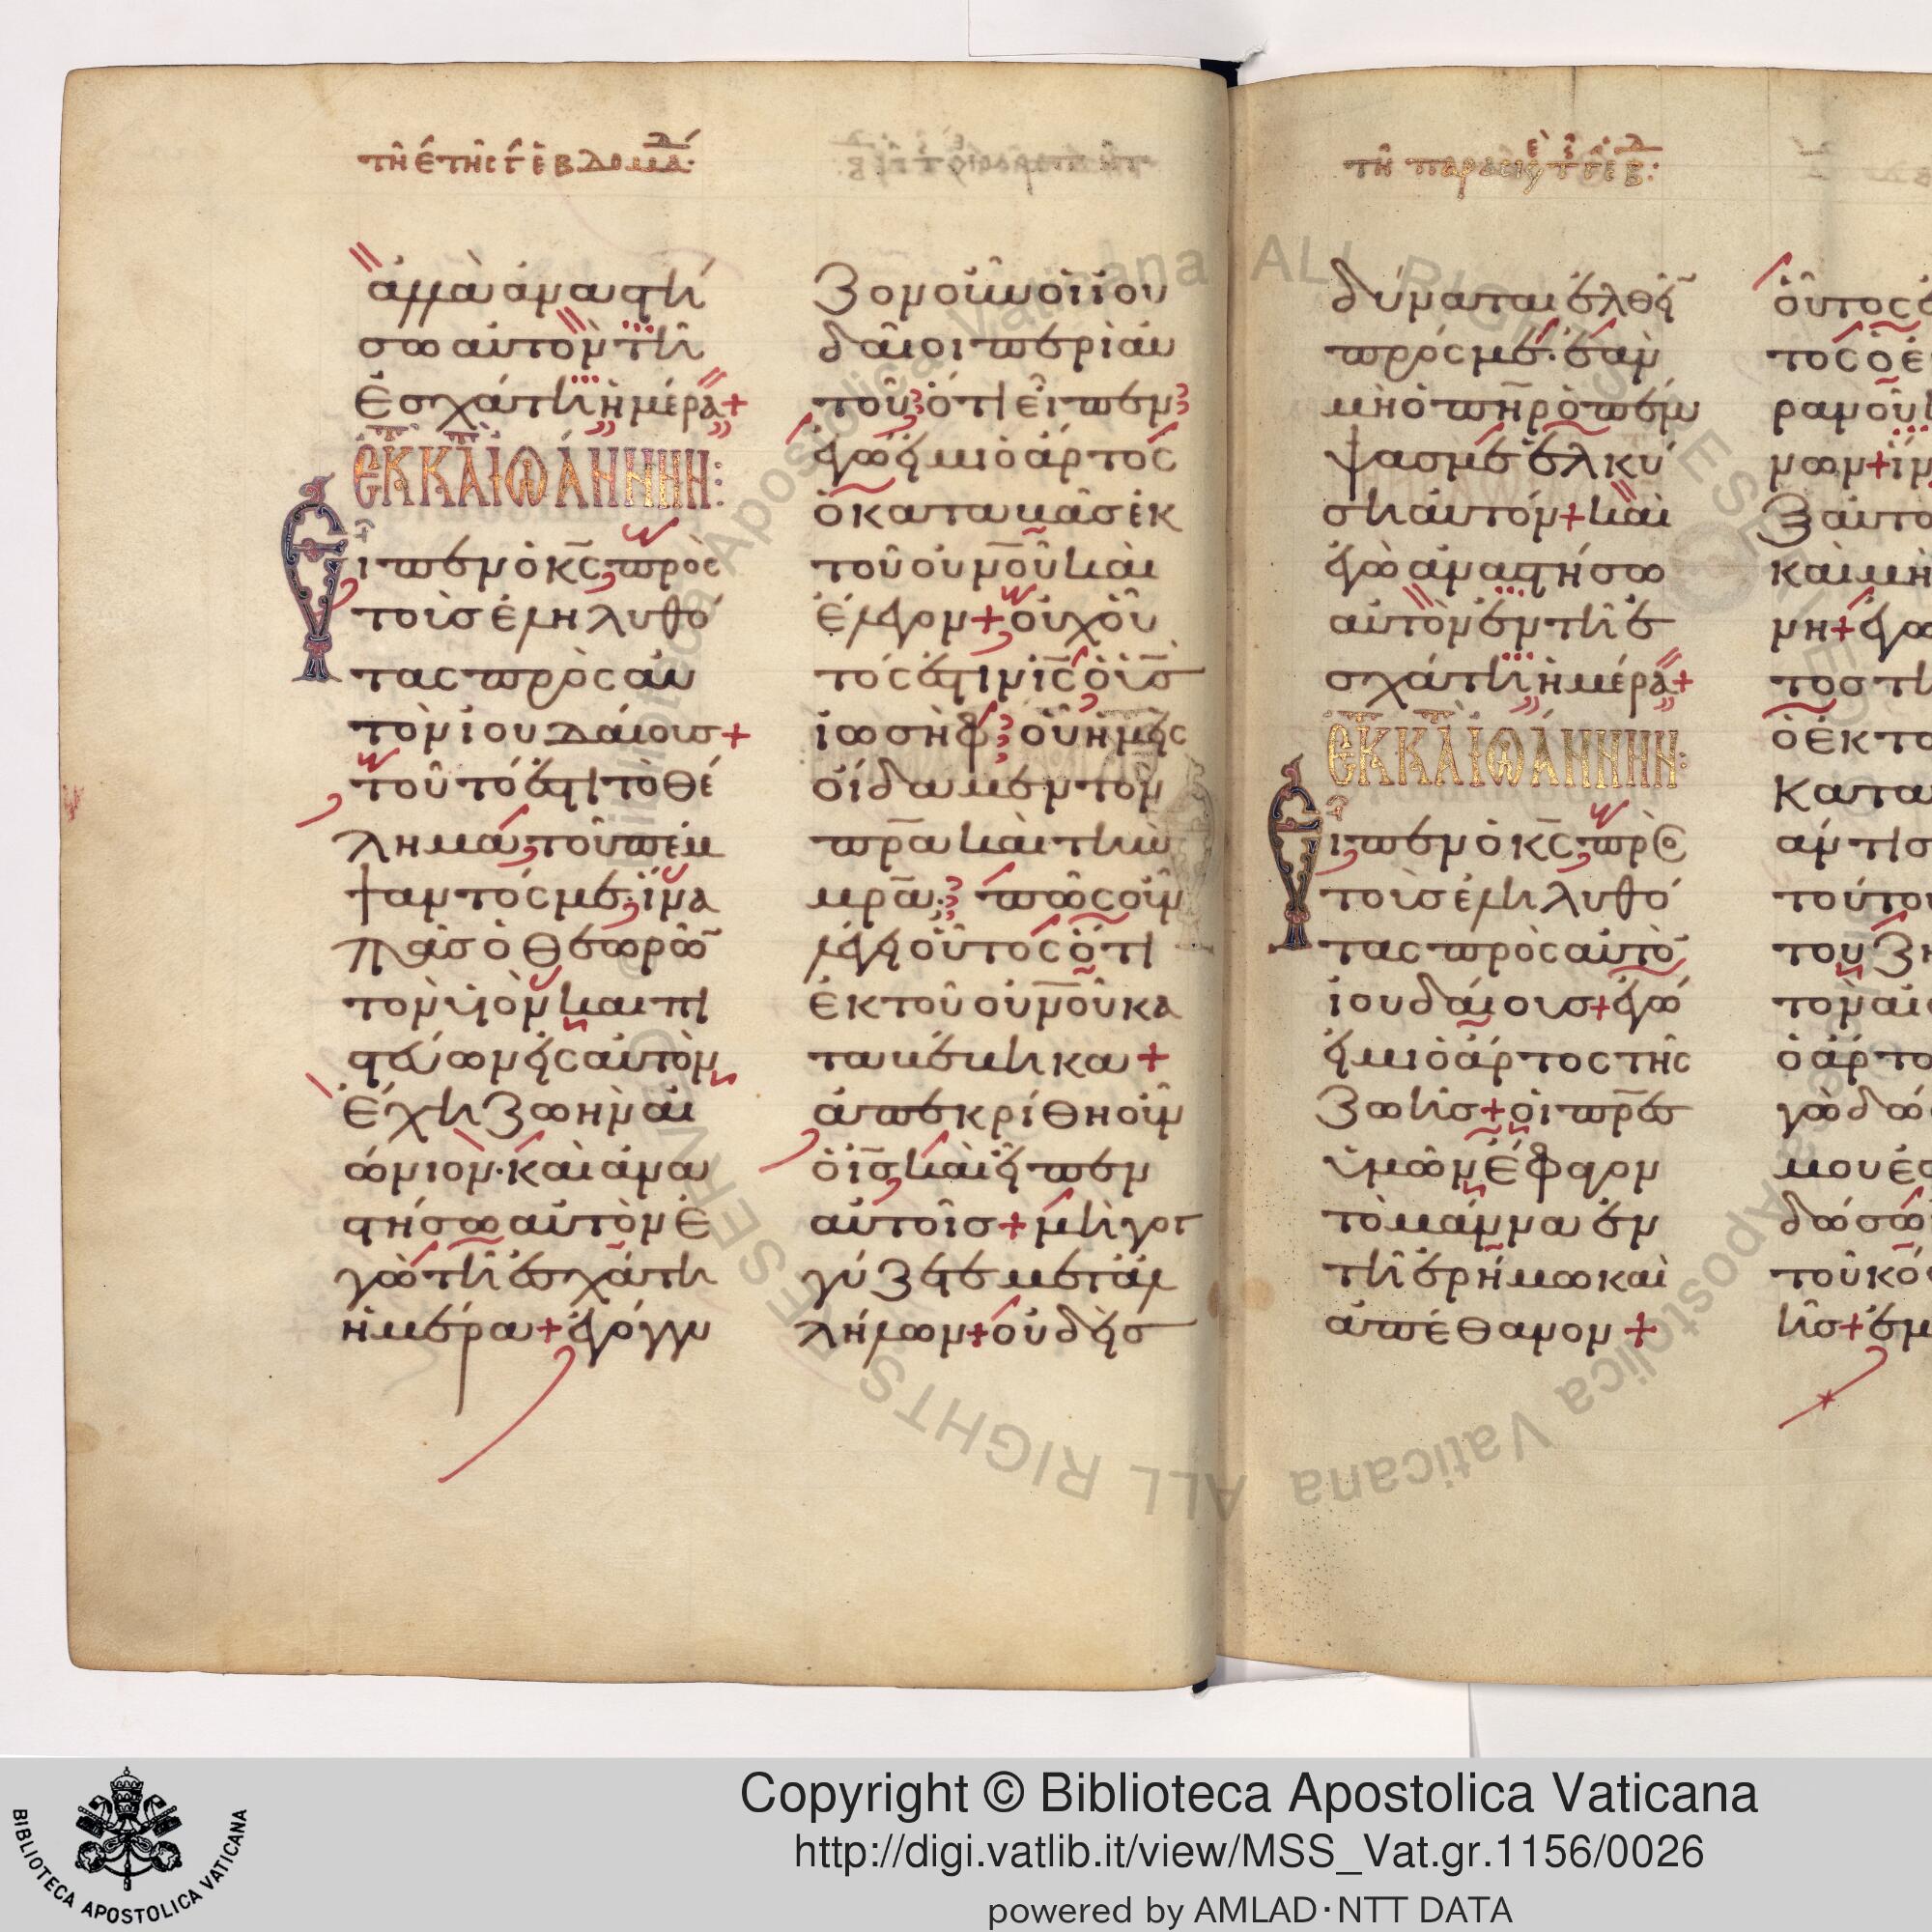 τῇ ε τῆς γ ἑβδομάδ
τῇ παρασκευ τ γ εβ:
ἀλλὰ ἀναστή
σω αὐτὸν τῆ
ἐσχάτη ἡμέρα+
ἐκ κατ Ἰωάννην:
Εἶπεν ὁ κς πρὸς
τοὺς ἐληλυθό
τας πρὸς αὐ
τὸν ἰουδαίους+
τοῦτό ἐστι τὸ θέ
λημα τοῦ πέμ
ψαντός με· ἵνα
πᾶς ὁ θεωρῶ
τὸν υἱὸν καὶ πι
στεύων εἰς αὐτὸν
ἔχη ζωὴν αἰ
ώνιον· καὶ ἀνα
στήσω αὐτὸν ἐ
γὼ τῆ ἐσχάτη
ἡμέρα+ ἐγόγγυ
ζον οὖν οἱ ἰου
δαῖοι περὶ αὐ
τοῦ· ὅτι εἶπεν
ἐγώ εἰμι ὁ ἄρτος
ὁ καταβὰς ἐκ
τοῦ οὐνοῦ καὶ
ἔλεγον+ οὐχ οὗ
τός ἐστιν ις ὁ υς
ἰωσήφ· οὗ ἡμεῖς
οἴδαμεν τὸν
πρα καὶ τὴν
μρα· πῶς οὖν
λέγει οὗτος ὅτι
ἐκ τοῦ οὐνοῦ κα
ταβέβηκα+
ἀπεκρίθη οὖν
ὁ ις καὶ εἶπεν
αὐτοῖς+ μὴ γογ
γύζετε μετ' ἀλ
λήλων+ οὐδεὶς
δύναται ἐλθεῖ
πρός με· ἐὰν
μὴ ὁ πηρ ὁ πέμ
ψας με ἑλκύ
ση αὐτόν+ καὶ
ἐγὼ ἀναστήσω
αὐτὸν ἐν τῆ ἐ
σχάτη ἡμέρα+
ἐκ κατ Ἰωάννην:
Εἶπεν ὁ κς πρὸς
τοὺς ἐληλυθό
τας πρὸς αὐτὸ
ἰουδαίους+ ἐγώ
εἰμι ὁ ἄρτος τῆς
ζωῆς+ οἱ πρες
ὑμῶν ἔφαγον
τὸ μάννα ἐν
τῆ ἐρήμω καὶ
ἀπέθανον+
οὗτος ὁ
τος ὁ ἐ
ρανοῦ
νων+ ἵν
ζ αὐτο
καὶ μὴ
νη+ ἐγώ
τος τι
ὁ ἐκ το
κατα
αν τισ
τούτου
του ζή
τὸν αἰ
ὁ ἄρτο
γὼ δώ
μου ἐσ
δώσω
τοῦ κό
ῆς+ ἐμ
Copyright © Biblioteca Apostolica Vaticana
http://digi.vatlib.it/view/MSS_Vat.gr.1156/0026
powered by AMLAD·NTT DATA
BIBLIOTECA APOSTOLICA VATICANA